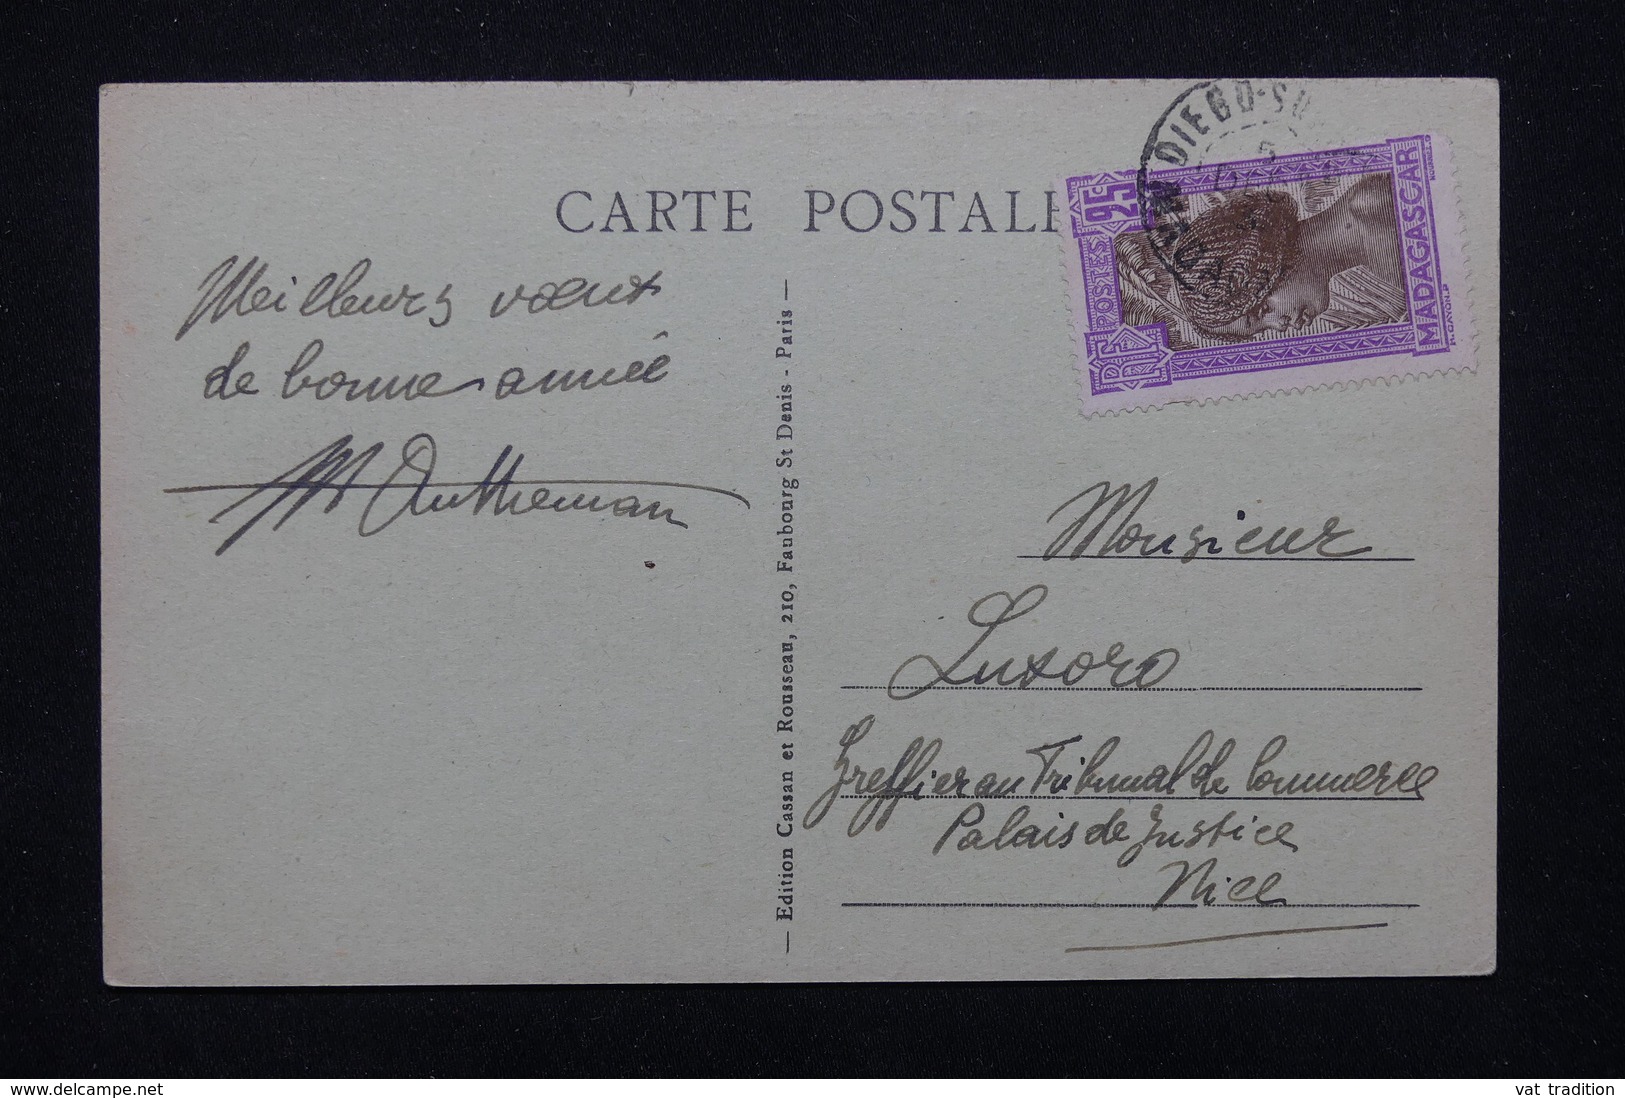 CARTE POSTALE
DIEGO-SU
MADAGASCAR
25c
POSTES
RF
MADAGASCAR
Meilleurs vœux
de bonne année
M Antheman
— Edition Cassan et Rousseau, 210, Faubourg St Denis - Paris —
Monsieur
Luxoro
Greffier au Tribunal de Commerce
Palais de Justice
Nice
www.delcampe.net
vat tradition